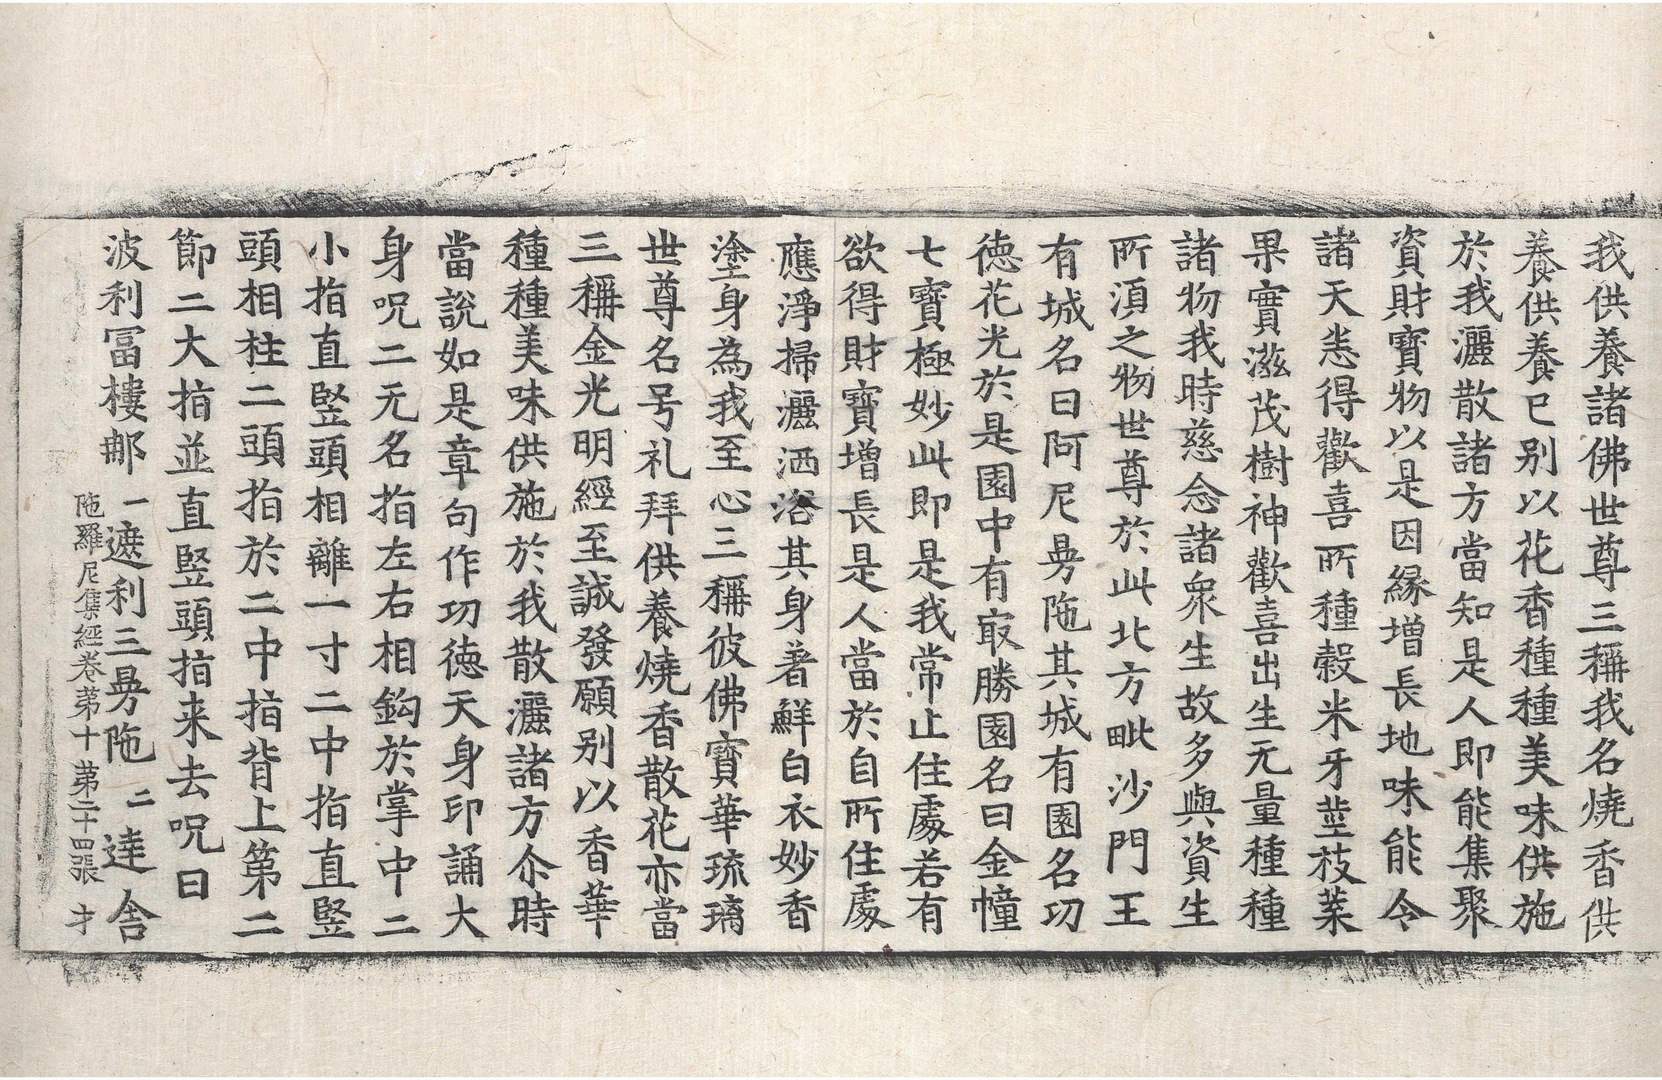 我供養諸佛世尊三稱我名燒香供
養供養已別以花香種種美味供施
於我灑散諸方當知是人即能集聚
資財寶物以是因緣增長地味能令
諸天悉得歡喜所種穀米牙莖枝葉
果實滋茂樹神歡喜出生无量種種
諸物我時慈念諸衆生故多與資生
所湏之物世尊於此北方毗沙門王
有城名曰阿尼曼陁其城有園名功
德花光於是園中有㝡勝園名曰金幢
七寶極妙此即是我常止住處若有
欲得財寶增長是人當於自所住處
應淨掃灑洒浴其身著鮮白衣妙香
塗身為我至心三稱彼佛寶華琉璃
世尊名号礼拜供養燒香散花亦當
三稱金光明經至誠發願別以香華
種種美味供施於我散灑諸方尒時
當說如是章句作功德天身印誦大
身呪二无名指左右相鈎於掌中二
小指直竪頭相離一寸二中指直竪
頭相柱二頭指於二中指背上第二
節二大指並直竪頭指来去呪曰
波利冨樓那 一遮利三曼陁 二達舎
陁羅尼集經卷第十 第二十四張 才